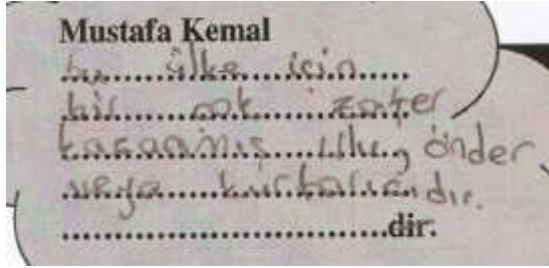 Mustafa Kemal
bu ülke için
bir çok zafer
kazanmış ulu önder
veya kurtarıcıdır.
dir.